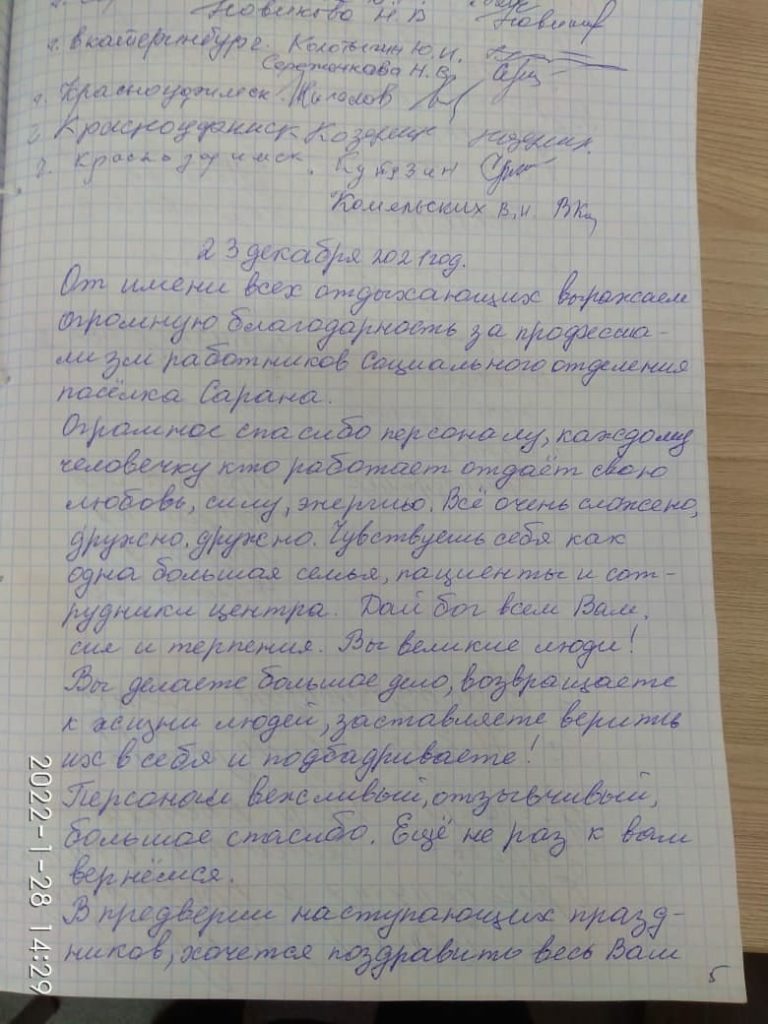 Новикова Н В
г. Екатеринбург. Колотыгин Ю.И.
Н.В.
г. Красноуфимск
Красноуфимск
г. Красноуфимск.
Комельских В.И.
23 декабря 2021 год.
От имени всех отдыхающих выражаем
огромную благодарность за професиа-
лизм работников социального отделения
посёлка Сарана.
Огромное спасибо персоналу, каждому
человечку кто работает отдаёт свою
любовь, силу, энергию. Всё очень сложено,
дружно. дружно. Чувствуешь себя как
одна большая семья, пациенты и сот-
рудники центра. Дай бог всем Вам,
сил и терпения. Вы великие люди!
Вы делаете большое дело, возвращаете
к жизни людей, заставляете верить
их в себя и подбадриваете!
Персонал вежливый, отзывчивый,
большое спасибо. Ещё не раз к вам
вернёмся.
В предверии наступающих празд-
ников, хочется поздравить весь Вам
5
2022-1-28 14:29